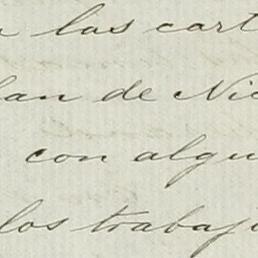 a las cart
lan de Nic
con algu
los trabaj